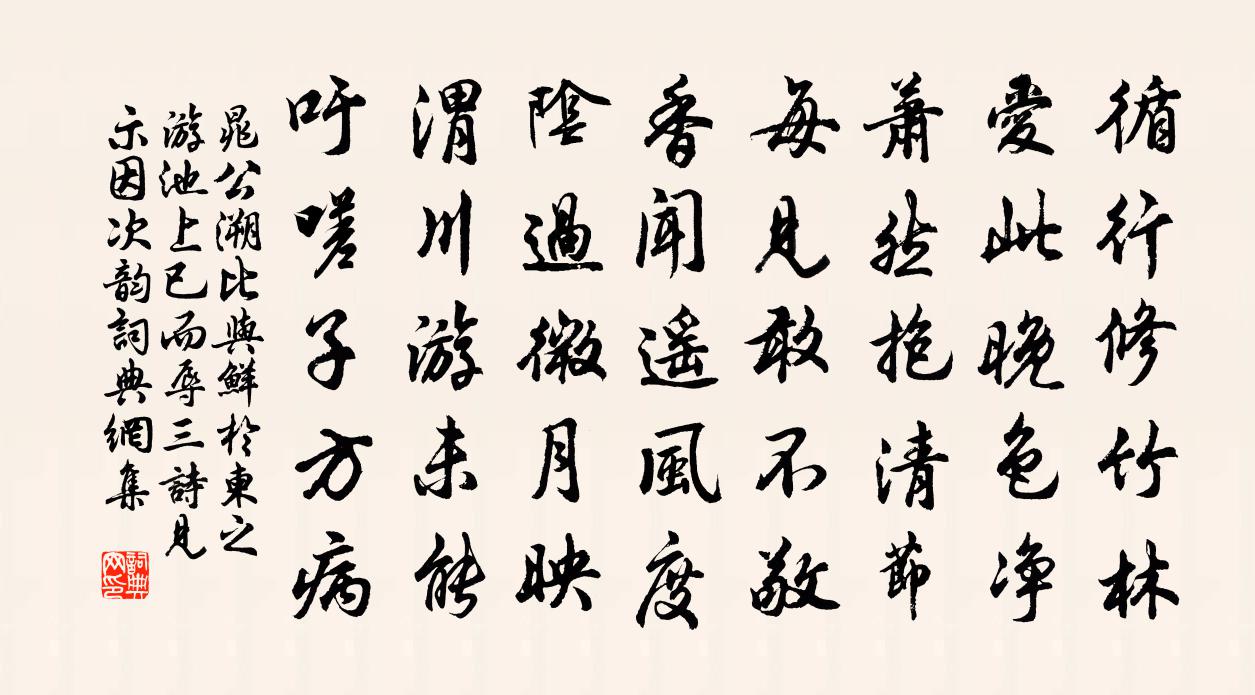 循行修竹林
愛此晚色净
蕭然抱清節
每見敢不敬
香聞遥風度
陰過微月映
渭川游未能
吁嗟子方病
晁公溯比與鮮於東之
游池上已而辱三詩見
示因次韵詞典網集
詞典網印